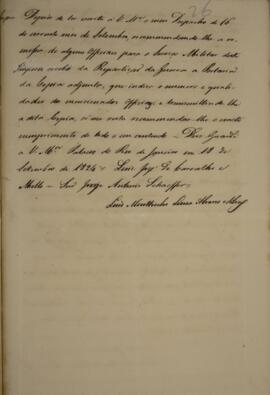 26
Depois de ter escrito a V. M.ce o meu Despacho de 16
do corrente mez de Setembro, recommendando-lhe a re-
messa de alguns Officiaes para o Serviço Militar deste
Imperio recebi da Repartição da Guerra a Portaria
da Copia adjunta, que indica o numero e quali-
dades dos mencionados Officiaes e transmittindo-lhe
a dita Copia, só me resta recommendar-lhe o exacto
cumprimento de todo o seu contexto – Deos Guarde
a V. M.ce Palacio do Rio de Janeiro em 18 de
Setembro de 1824 – Luiz José de Carvalho e
Mello – Snr Jorge Antonio Schaeffer
Luis Moutinho Lima Alvares e Silva